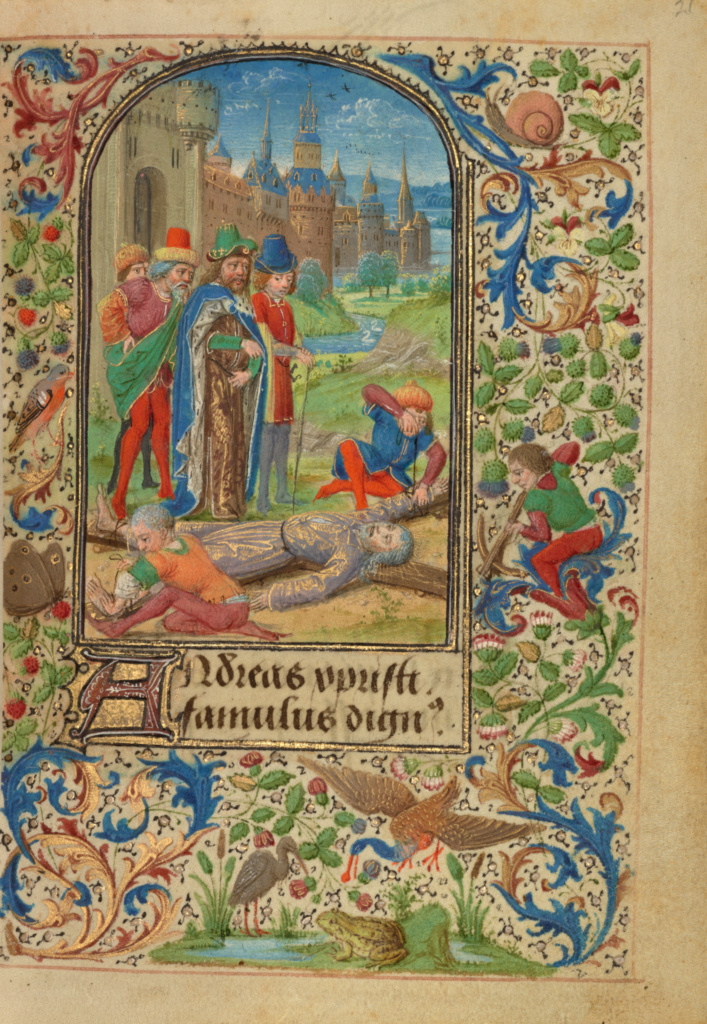 21
Andreas xpristi
famulus dign⁹